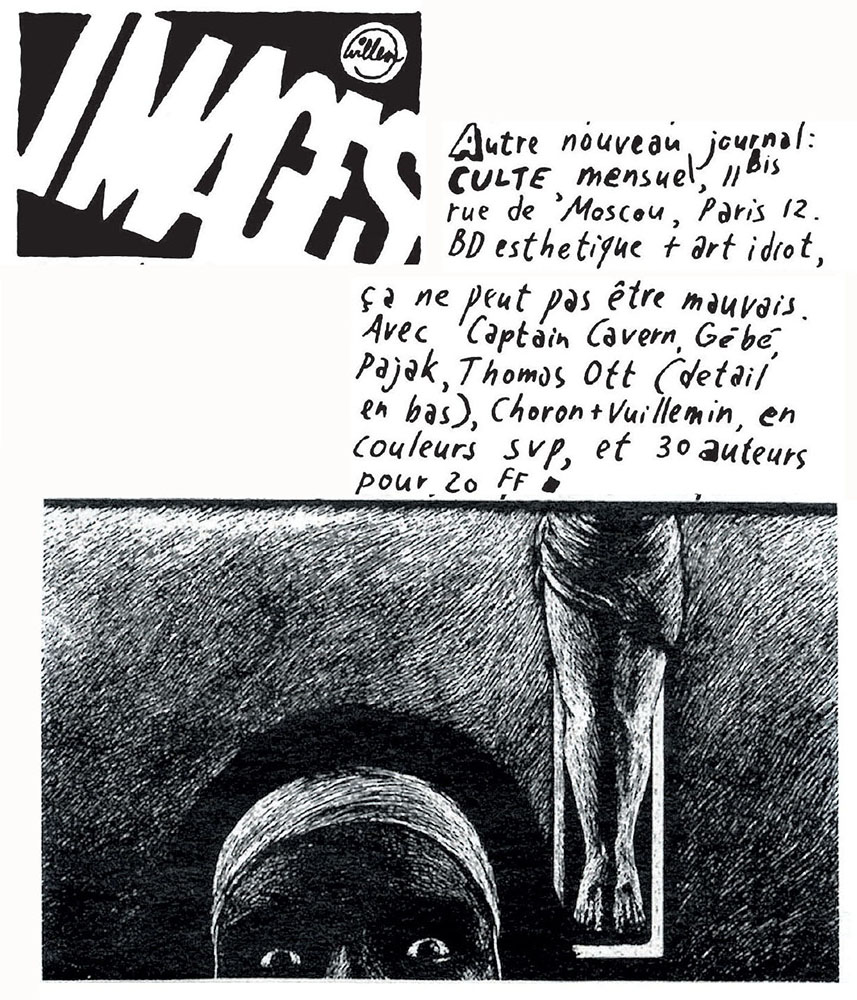 IMAGES
Willem
Autre nouveau journal:
CULTE, mensuel, 11 Bis
rue de Moscou, Paris 12.
BD esthetique + art idiot,
ça ne peut pas être mauvais.
Avec Captain Cavern, Gébé,
Pajak, Thomas Ott (detail
en bas), Choron + Vuillemin, en
couleurs svp, et 30 auteurs
pour 20 FF